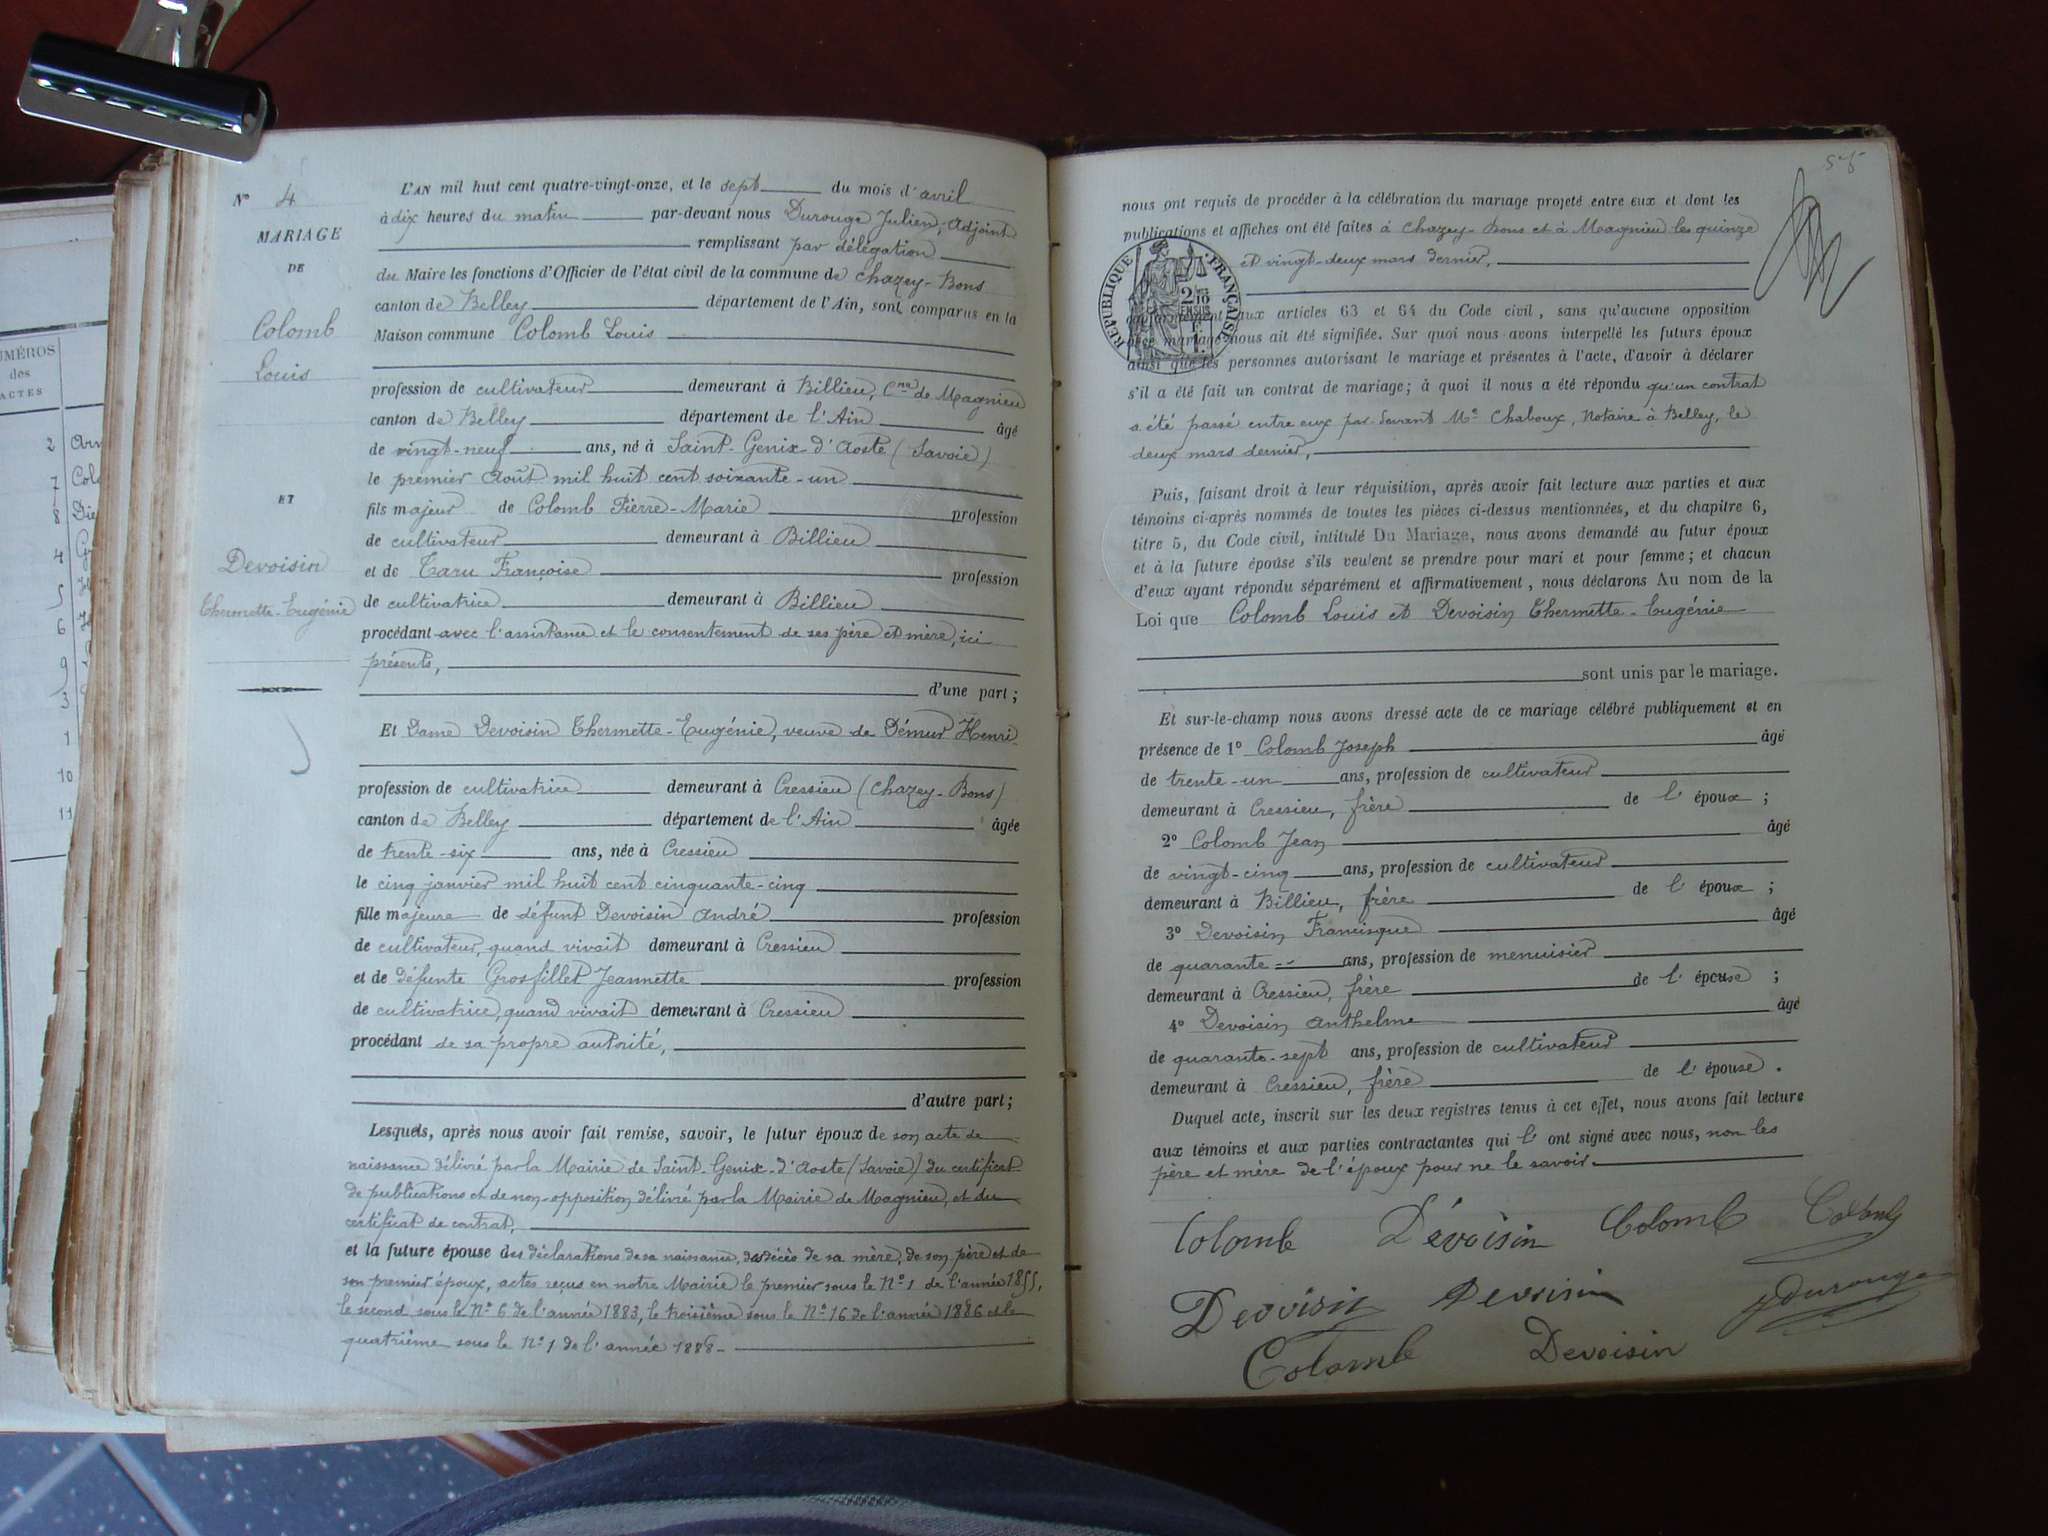 NUMÉROS
des
ACTES
2
7
8
4
5
6
9
3
1
10
11
N° 4
MARIAGE
DE
Colomb
Louis
ET
Devoisin
Thermette-Eugénie
L'AN mil huit cent quatre-vingt-onze, et le sept du mois d'avril
à dix heures du matin par-devant nous Durouge Julien, Adjoint
remplissant par délégation
du Maire les fonctions d'Officier de l'état civil de la commune de Chazey-Bons
canton de Belley département de l'Ain, sont comparus en la
Maison commune Colomb Louis
profession de cultivateur demeurant à Billieu, Cne de Magnieu
canton de Belley département de l'Ain âgé
de vingt-neuf ans, né à Saint-Genix-d'Aoste (Savoie)
le premier Août mil huit cent soixante-un
fils majeur de Colomb Pierre-Marie profession
de cultivateur demeurant à Billieu
et de Caru Françoise profession
de cultivatrice demeurant à Billieu
procédant avec l'assistance et le consentement de ses père et mère, ici
présents,
d'une part ;
Et Dame Devoisin Thermette-Eugénie, veuve de Démur Henri
profession de cultivatrice demeurant à Cressieu (Chazey-Bons)
canton de Belley département de l'Ain âgée
de trente-six ans, née à Cressieu
le cinq janvier mil huit cent cinquante-cinq
fille majeure de défunt Devoisin André profession
de cultivateur, quand vivait demeurant à Cressieu
et de défunte Grosfillet Jeannette profession
de cultivatrice, quand vivait demeurant à Cressieu
procédant de sa propre autorité,
d'autre part ;
Lesquels, après nous avoir fait remise, savoir, le futur époux de son acte de
naissance délivré par la Mairie de Saint-Genix-d'Aoste (Savoie) du certificat
de publications et de non-opposition délivré par la Mairie de Magnieu, et du
certificat de contrat,
et la future épouse des déclarations de sa naissance, des décès de sa mère, de son père et de
son premier époux, actes reçus en notre Mairie le premier sous le N° 1 de l'année 1855,
le second sous le N° 6 de l'année 1883, le troisième sous le N° 16 de l'année 1886 et le
quatrième sous le N° 1 de l'année 1888.
nous ont requis de procéder à la célébration du mariage projeté entre eux et dont les
publications et affiches ont été faites à Chazey-Bons et à Magnieu les quinze
et vingt-deux mars dernier,
RÉPUBLIQUE FRANÇAISE
conformément aux articles 63 et 64 du Code civil, sans qu'aucune opposition
mariage nous ait été signifiée. Sur quoi nous avons interpellé les futurs époux
ainsi que les personnes autorisant le mariage et présentes à l'acte, d'avoir à déclarer
s'il a été fait un contrat de mariage ; à quoi il nous a été répondu qu'un contrat
a été passé entre eux par-devant Me Chaboux, Notaire à Belley, le
deux mars dernier,
Puis, faisant droit à leur réquisition, après avoir fait lecture aux parties et aux
témoins ci-après nommés de toutes les pièces ci-dessus mentionnées, et du chapitre 6,
titre 5, du Code civil, intitulé Du Mariage, nous avons demandé au futur époux
et à la future épouse s'ils veulent se prendre pour mari et pour femme ; et chacun
d'eux ayant répondu séparément et affirmativement, nous déclarons Au nom de la
Loi que Colomb Louis et Devoisin Thermette-Eugénie
sont unis par le mariage.
Et sur-le-champ nous avons dressé acte de ce mariage célébré publiquement et en
présence de 1° Colomb Joseph âgé
de trente-un ans, profession de cultivateur
demeurant à Cressieu, frère de l'époux ;
2° Colomb Jean âgé
de vingt-cinq ans, profession de cultivateur
demeurant à Billieu, frère de l'époux ;
3° Devoisin Francisque âgé
de quarante ans, profession de menuisier
demeurant à Cressieu, frère de l'épouse ;
4° Devoisin Anthelme âgé
de quarante-sept ans, profession de cultivateur
demeurant à Cressieu, frère de l'épouse.
Duquel acte, inscrit sur les deux registres tenus à cet effet, nous avons fait lecture
aux témoins et aux parties contractantes qui l'ont signé avec nous, non les
père et mère de l'époux pour ne le savoir.
Colomb Dévoisin Colomb Colomb
Devoisin Devoisin JDurouge
Colomb Devoisin